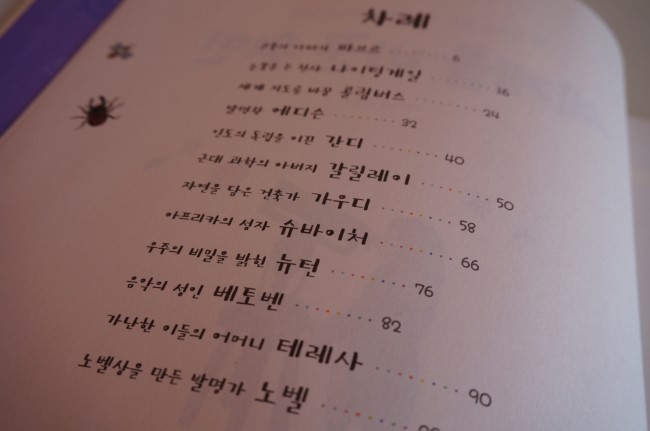 차례
곤충의 아버지 파브르 6
나이팅게일 16
세계 지도를 바꾼 콜럼버스 24
발명왕 에디슨 32
인도의 독립을 이끈 간디 40
근대 과학의 아버지 갈릴레이 50
자연을 닮은 건축가 가우디 58
아프리카의 성자 슈바이처 66
우주의 비밀을 밝힌 뉴턴 76
음악의 성인 베토벤 82
가난한 이들의 어머니 테레사 90
노벨상을 만든 발명가 노벨